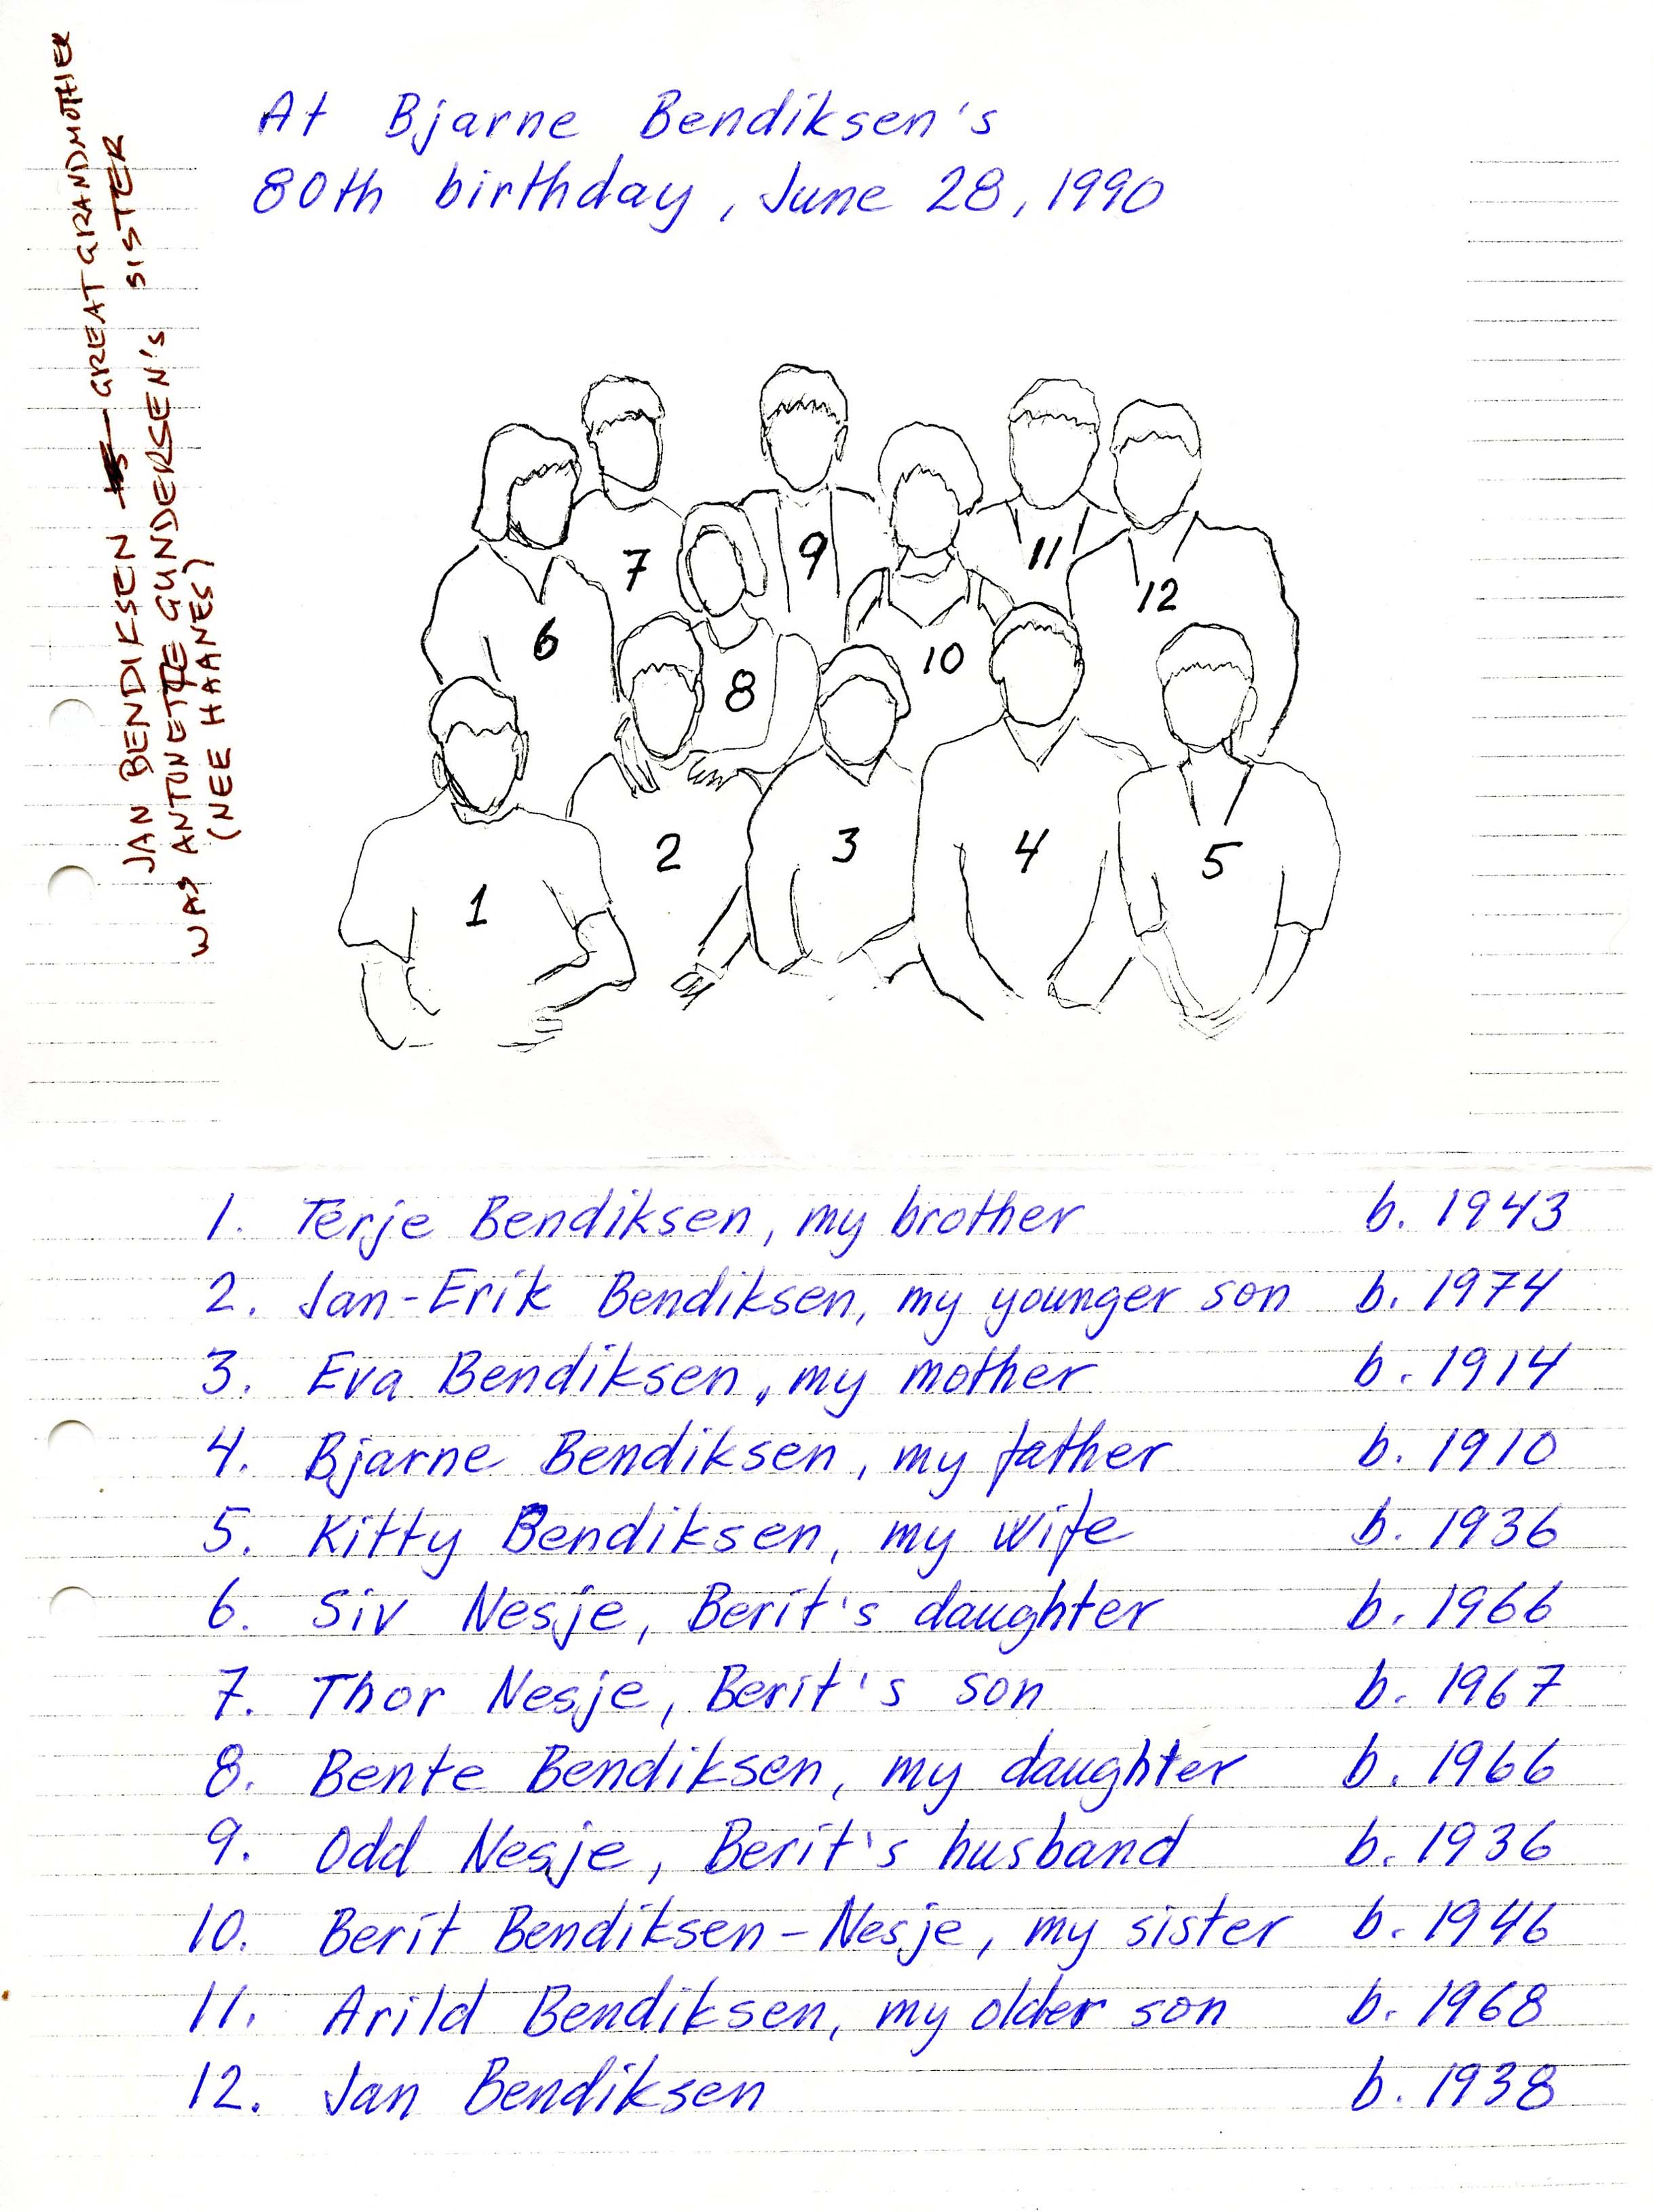 At Bjarne Bendiksen's
80th birthday, June 28, 1990
JAN BENDIKSEN GREAT GRANDMOTHER
WAS ANTONETTE GUNDERSEN's SISTER
(NEE HAANES)
6
7
8
9
10
11
12
1
2
3
4
5
1. Terje Bendiksen, my brother b. 1943
2. Jan-Erik Bendiksen, my younger son b. 1974
3. Eva Bendiksen, my mother b. 1914
4. Bjarne Bendiksen, my father b. 1910
5. Kitty Bendiksen, my wife b. 1936
6. Siv Nesje, Berit's daughter b. 1966
7. Thor Nesje, Berit's son b. 1967
8. Bente Bendiksen, my daughter b. 1966
9. Odd Nesje, Berit's husband b. 1936
10. Berit Bendiksen-Nesje, my sister b. 1946
11. Arild Bendiksen, my older son b. 1968
12. Jan Bendiksen b. 1938